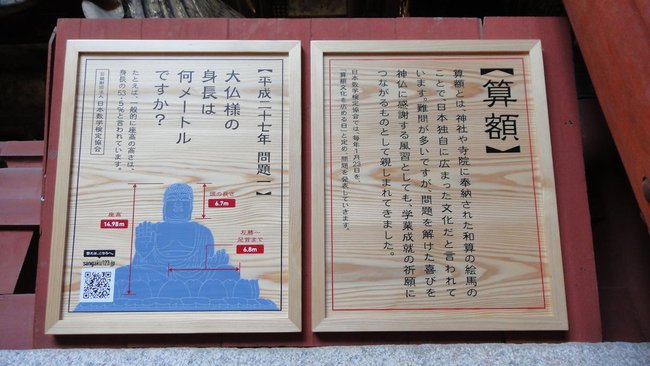 【算額】
算額とは、神社や寺院に奉納された和算の絵馬の
ことで、日本独自に広まった文化だと言われて
います。難問が多いですが、問題を解けた喜びを
神仏に感謝する風習としても、学業成就の祈願に
つながるものとして親しまれてきました。
日本数学検定協会では、毎年1月23日を、
「算額文化を広める日」と定め、問題を発表していきます。
【平成二十七年 問題】
大仏様の
身長は
何メートル
ですか？
たとえば、一般的に座高の高さは、
身長の53.5%と言われています。
公益財団法人 日本数学検定協会
頭の長さ
6.7m
座高
14.98m
左膝〜
足首まで
6.8m
答えは、こちらへ。
sangaku123.jp